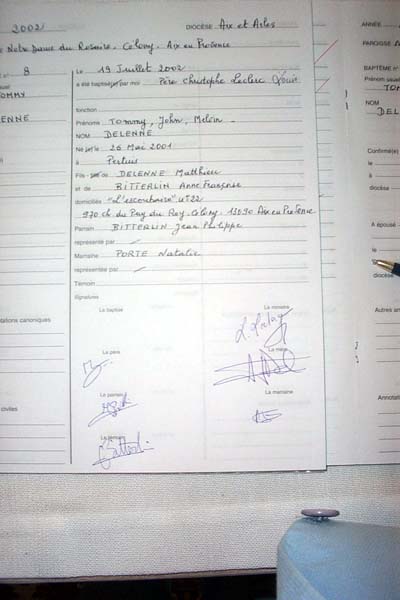 2002 DIOCÈSE Aix et Arles
Notre Dame du Rosaire. Célony. Aix en Provence
N° 8
Le 19 Juillet 2002
a été baptisé(e) par moi Père Christophe Leclerc
fonction
Prénoms Tommy, John, Melvin
NOM DELENNE
Né le 26 Mai 2001
à Pertuis
Fils DELENNE Matthieu
et de BITTERLIN Anne Françoise
domiciliés "L'escoubaire" n° 22
970 ch du Puy du Roy. Célony. 13090 Aix en Provence
Parrain BITTERLIN Jean Philippe
représenté par
Marraine PORTE Natalie
représentée par
Témoin
Signatures
Le baptisé
Le ministre
Le père
La mère
Le parrain
La marraine
Le témoin
OMMY
ENNE
tations canoniques
civiles
ANNÉE
PAROISSE
BAPTÊME n°
Prénom usuel
TOM
DEL
Confirmé(e)
le
à
diocèse
A épousé
le
diocèse
Autres an
Annotatio